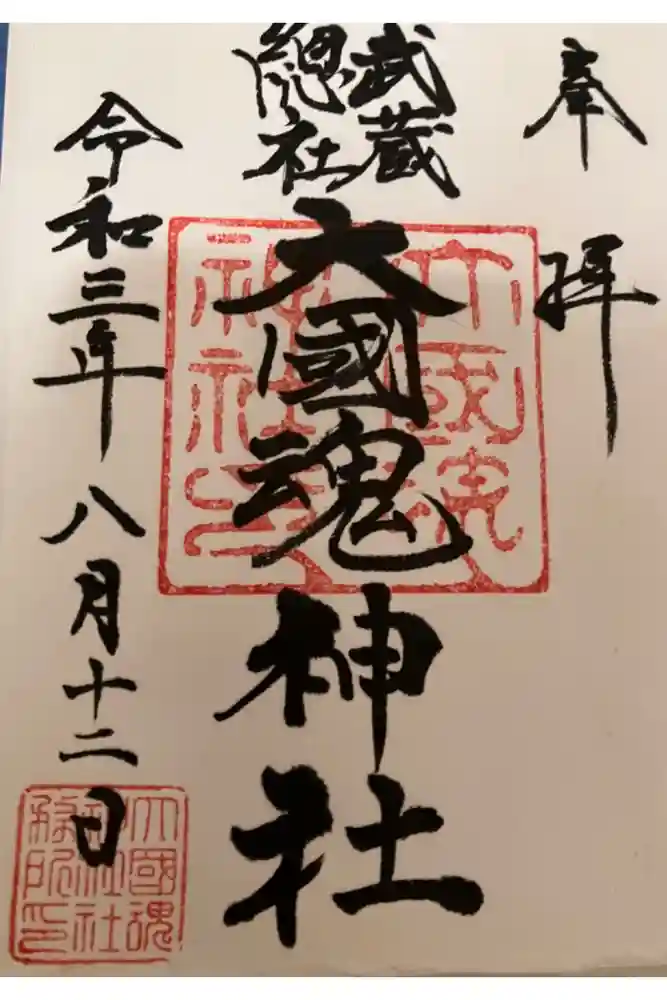 奉拝
武蔵
總社
大國魂神社
令和三年八月十二日
大國魂
神社印
大國魂
神社社
務所印